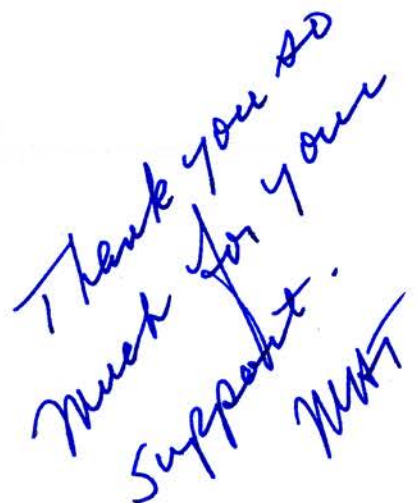 Thank you so
much for your
support.